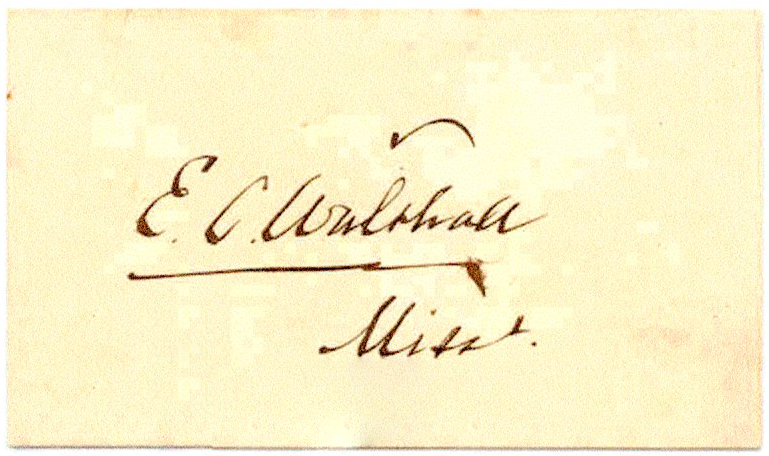 E. C. Walthall
Miss.